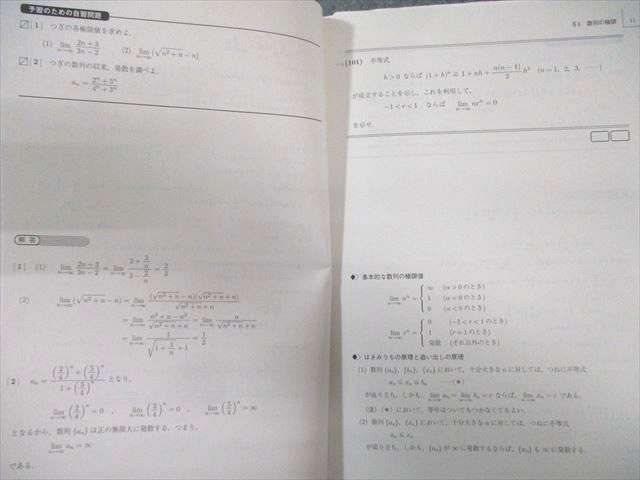 予習のための自習問題
[1] つぎの各極限値を求めよ.
(1) lim_{n→∞} (2n+3)/(3n−2) (2) lim_{n→∞} (√(n²+n)−n)
[2] つぎの数列の収束, 発散を調べよ.
a_n = (2ⁿ+5ⁿ)/(4ⁿ+3ⁿ)
解答
[1] (1) lim_{n→∞} (2n+3)/(3n−2) = lim_{n→∞} (2+3/n)/(3−2/n) = 2/3
(2) lim_{n→∞} (√(n²+n)−n) = lim_{n→∞} (√(n²+n)−n)(√(n²+n)+n)/(√(n²+n)+n)
= lim_{n→∞} (n²+n−n²)/(√(n²+n)+n) = lim_{n→∞} n/(√(n²+n)+n)
= lim_{n→∞} 1/(√(1+1/n)+1) = 1/2
[2] a_n = ((2/4)ⁿ+(5/4)ⁿ)/(1+(3/4)ⁿ) となり,
lim_{n→∞} (2/4)ⁿ=0 , lim_{n→∞} (3/4)ⁿ=0 , lim_{n→∞} (5/4)ⁿ=∞
となるから, 数列 {a_n} は正の無限大に発散する. つまり,
lim_{n→∞} a_n=∞
である.
§1 数列の極限 11
(101) 不等式
h>0 ならば (1+h)ⁿ≧1+nh+(n(n−1)/2)h² (n=1, 2, 3, ……)
が成立することを示し, これを利用して,
−1<r<1 ならば lim_{n→∞} nrⁿ=0
を示せ.
◆〉基本的な数列の極限値
lim_{n→∞} n^α = { ∞ (α>0のとき)
1 (α=0のとき)
0 (α<0のとき)
lim_{n→∞} rⁿ = { 0 (−1<r<1のとき)
1 (r=1のとき)
発散 (それ以外のとき)
◆〉はさみうちの原理と追い出しの原理
(1) 数列 {a_n}, {b_n}, {x_n} において, 十分大きな n に対しては, つねに不等式
a_n≦x_n≦b_n ……(*)
が成り立ち, しかも, lim_{n→∞} a_n=lim_{n→∞} b_n=c ならば, lim_{n→∞} x_n=c である.
(注) (*) において, 等号はついてもつかなくてもよい.
(2) 数列 {a_n}, {x_n} において, 十分大きな n に対しては, つねに不等式
a_n≦x_n
が成り立ち, しかも, {a_n} が ∞ に発散するならば, {x_n} も ∞ に発散する.